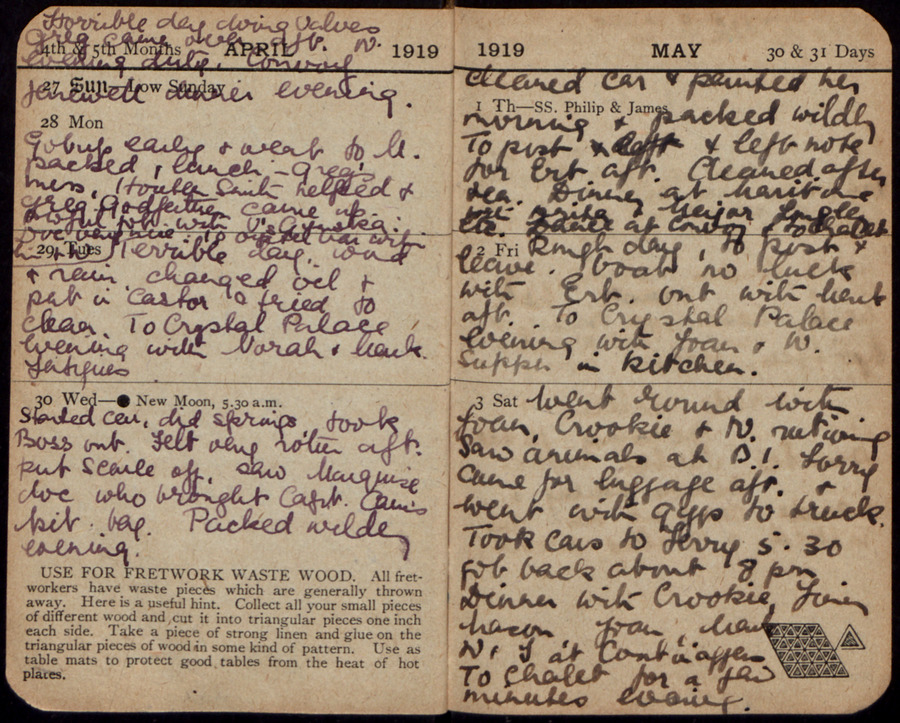 Horrible day doing valves
Greg came over aft. N.
4th & 5th Months APRIL 1919
evening duty. Convoy
27 Sun—Low Sunday
farewell dinner evening.
28 Mon
Got up early & went to M.
packed, lunch – Greg's
mess, helped &
Greg, Godfather came up.
Awful job with
29 Tues
Terrible day, wind
& rain, changed oil &
put in Castor & tried to
clean. To Crystal Palace
evening with Norah & Hank.
Fatigues
30 Wed—● New Moon, 5.30 a.m.
Started car, did springs, took
Boss out. Felt very rotten aft.
put Searle off, saw Marquise
doc who brought Capt.
kit bag. Packed wildly
evening.
USE FOR FRETWORK WASTE WOOD. All fret-
workers have waste pieces which are generally thrown
away. Here is a useful hint. Collect all your small pieces
of different wood and cut it into triangular pieces one inch
each side. Take a piece of strong linen and glue on the
triangular pieces of wood in some kind of pattern. Use as
table mats to protect good tables from the heat of hot
plates.
1919 MAY 30 & 31 Days
cleaned car & painted her
1 Th—SS. Philip & James
morning & packed wildly
To post & left note
for Ert aft. Cleaned after
tea. Dinner at
Dance at Convoy &
2 Fri
Rough day, to post &
leave boat no luck
with Ert. out with Hank
aft. To Crystal Palace
evening with Joan & N.
Supper in kitchen.
3 Sat
Went round with
Joan, Crookie & N.
Saw animals at B.1. Lorry
came for luggage aft. &
went with gyps to truck.
Took cars to ferry 5.30
got back about 8 pm
Dinner with Crookie,
Joan, Hank
N. & I at Continagers
To Chalet for a few
minutes evening.